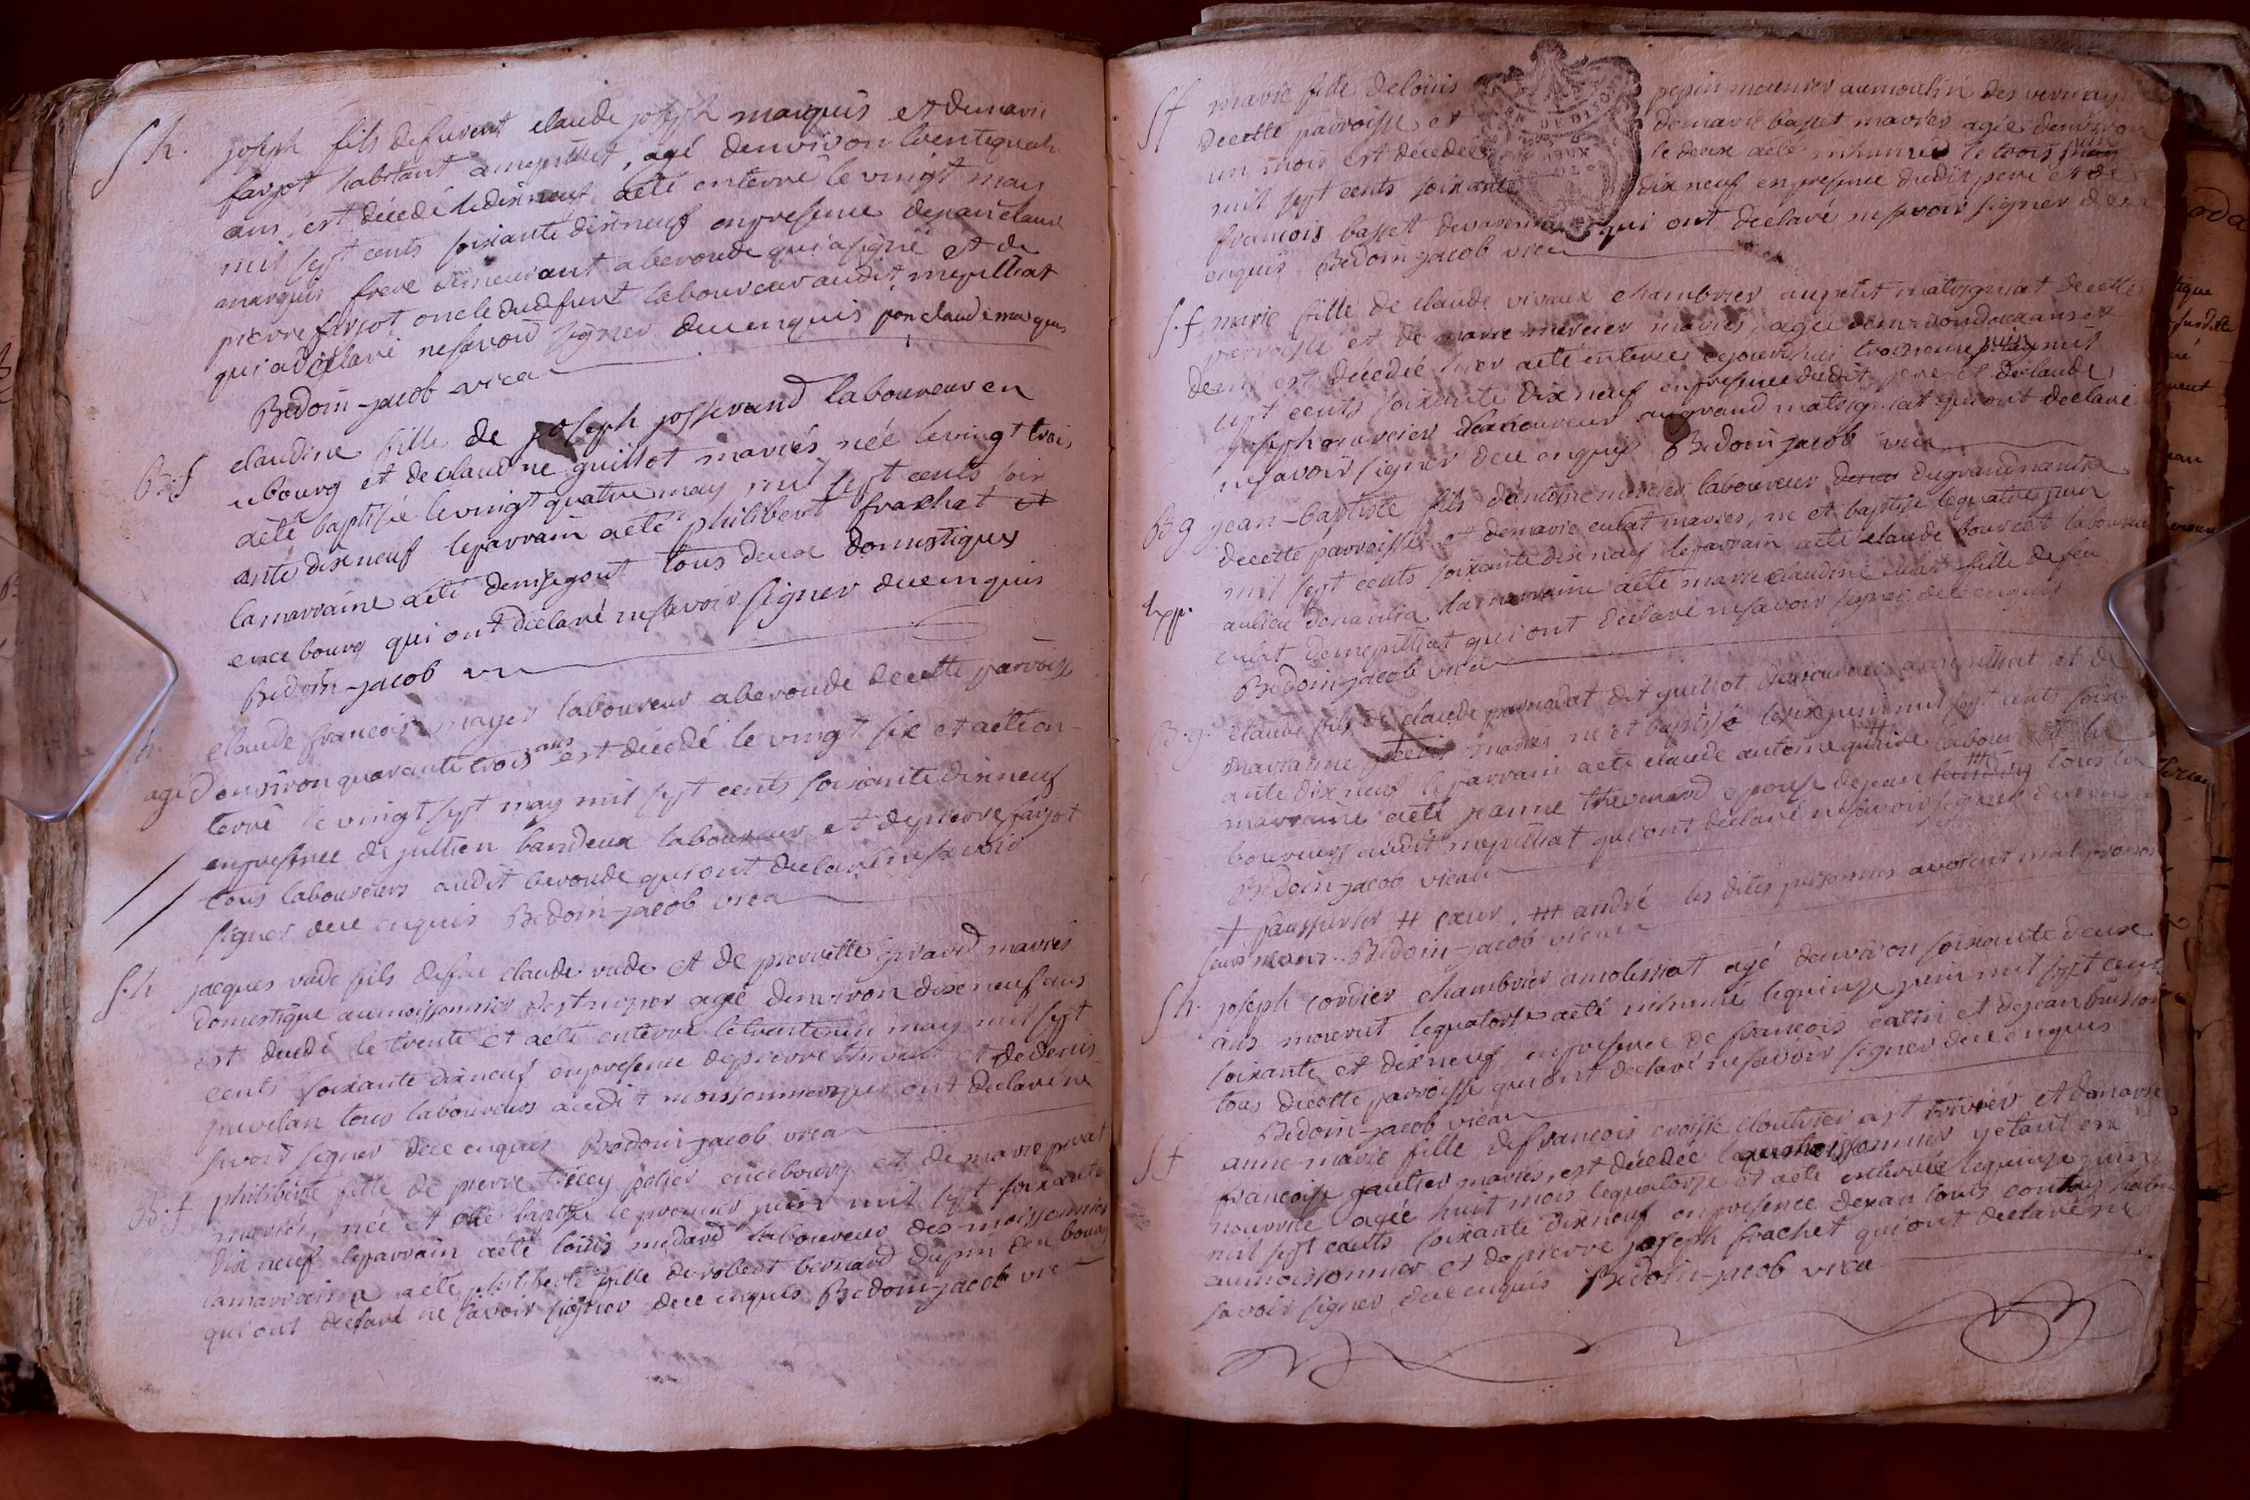 S h. joseph fils defunt claude joseph marquis et demarie
farjot habitant a mepilliat, agé denviron trentequatre
ans, est décedé ledixneuf aété enterré levingt may
mil sept cents soixante dixneuf enpresence dejean claude
marquis frere demeurant aberoude quiasigné et de
pierre farjot oncle dudefunt laboureur audit mepilliat
qui adéclaré nesavoir signer deceenquis jean claude marquis
Bedoin-jacob vica
B. f claudine fille de joseph josserand laboureur en
cebourg et declaudine guillot mariés née levingt trois
aété baptisée levingt quatre may mil sept cents soix
ante dixneuf leparrain aété philibert frachet et
lamarraine aété denise gout tous deux domestiques
encebourg qui ont déclaré nesavoir signer deceenquis
Bedoin-jacob vica
h claude francois mayer laboureur aberoude decette parroisse
agé denviron quarante trois ans est décedé le vingt six et aété en-
terré le vingt sept may mil sept cents soixante dixneuf
enpresence de jullien bandeux laboureur et depierre farjot
tous laboureurs audit beroude qui ont declaré nesavoir
signer dece enquis Bedoin-jacob vica
S. h jacques vude fils defeu claude vude et de pierrette givard mariés
domestique aumoissonnier destrivier agé denviron dixneuf ans
est decedé le trente et aété enterré letrenteun may mil sept
cents soixante dixneuf enpresence depierre et dedenis
prevelan tous laboureurs audit moissonnier qui ont declaré ne
savoir signer dece enquis Bedoin-jacob vica
B. f philiberte fille de pierre potier encebourg et de marie privat
mariés, née et été baptisée le premier juin mil sept soixante
dix neuf leparrain aété louis medard laboureur des moissonniers
lamarraine aété philiberte fille de robert bernard dupin deu bourg
qui ont declaré ne savoir signer dece enquis Bedoin-jacob vica
S f marie fille delouis pepin meunier aumoulin des vernay
decette parroisse et demarie basset mariés agée denviron
un mois est décedée le deux aété inhumée le trois juin
mil sept cents soixante dixneuf enpresence dudit pere et de
francois basset qui ont declaré nesavoir signer dece
enquis Bedoin-jacob vica
S. f marie fille de claude vivaux chambrier aupetit matrignat decette
parroisse et de marie mercier mariés, agée denviron deux ans et
demi est décedée hier aété enterrée cejourdhui troisieme juin mil
sept cents soixante dixneuf enpresence dudit pere et declaude
joseph mercier laboureur augrand matrignat qui ont declaré
nesavoir signer dece enquis Bedoin jacob vica
B. g jean-baptiste fils dantoine mercier laboureur dugrand nanta
decette parroisse et demarie culat mariés, né et baptisé lequatre juin
mil sept cents soixante dixneuf leparrain aété claude laboureur
aulieu denanta lamarraine aété marie claudine culat fille defeu
culat demepilliat qui ont déclaré nesavoir signer dece enquis
Bedoin jacob vica
B. g. claude fils de claude dit guillot laboureur amepilliat et de
mariés né et baptisé lesix juin mil sept cents soix
ante dix neuf leparrain aété claude antoine labour et la
marraine aété jeanne thevenard epouse dejean tous la
boureurs audit mepilliat qui ont declaré nesavoir signer dece enquis
Bedoin-jacob vica
+ faussurier ++ cœur. +++ andré les dites personnes avoient mal prononcé
leurs noms. Bedoin-jacob vica
S h. joseph cordier chambrier amolissiat agé denviron soixante deux
ans mourut lequatorze aété inhumé lequinze juin mil sept cents
soixante et dixneuf enpresence de francois cattin et dejean buisson
tous decette parroisse qui ont declaré nesavoir signer dece enquis
Bedoin-jacob vica
S f anne-marie fille defrancois croisse cloutier ast trivier et demarie
francoise gautier mariés, est décedée aumoissonnier yetant en
nourrice agée huit mois lequatorze et aété enterrée lequinze juin
mil sept cents soixante dixneuf enpresence dejean louis
aumoissonnier et depierre joseph frachet qui ont declaré ne
savoir signer dece enquis Bedoin-jacob vica